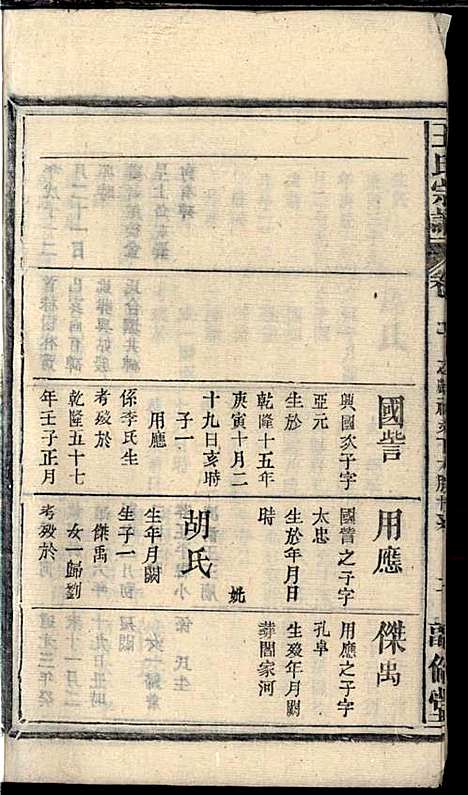 王氏宗譜
卷
國訾
興國次子字
亞元
生於
乾隆十五年
庚寅十月二
十九日亥時
子一
用應
係李氏生
考歿於
乾隆五十七
年壬子正月
用應
國訾之子字
太忠
生於年月日
時
妣
胡氏
生年月闕
生子一
傑禹
女一歸劉
考歿於
傑禹
用應之子字
孔卓
生歿年月闕
葬閻家河